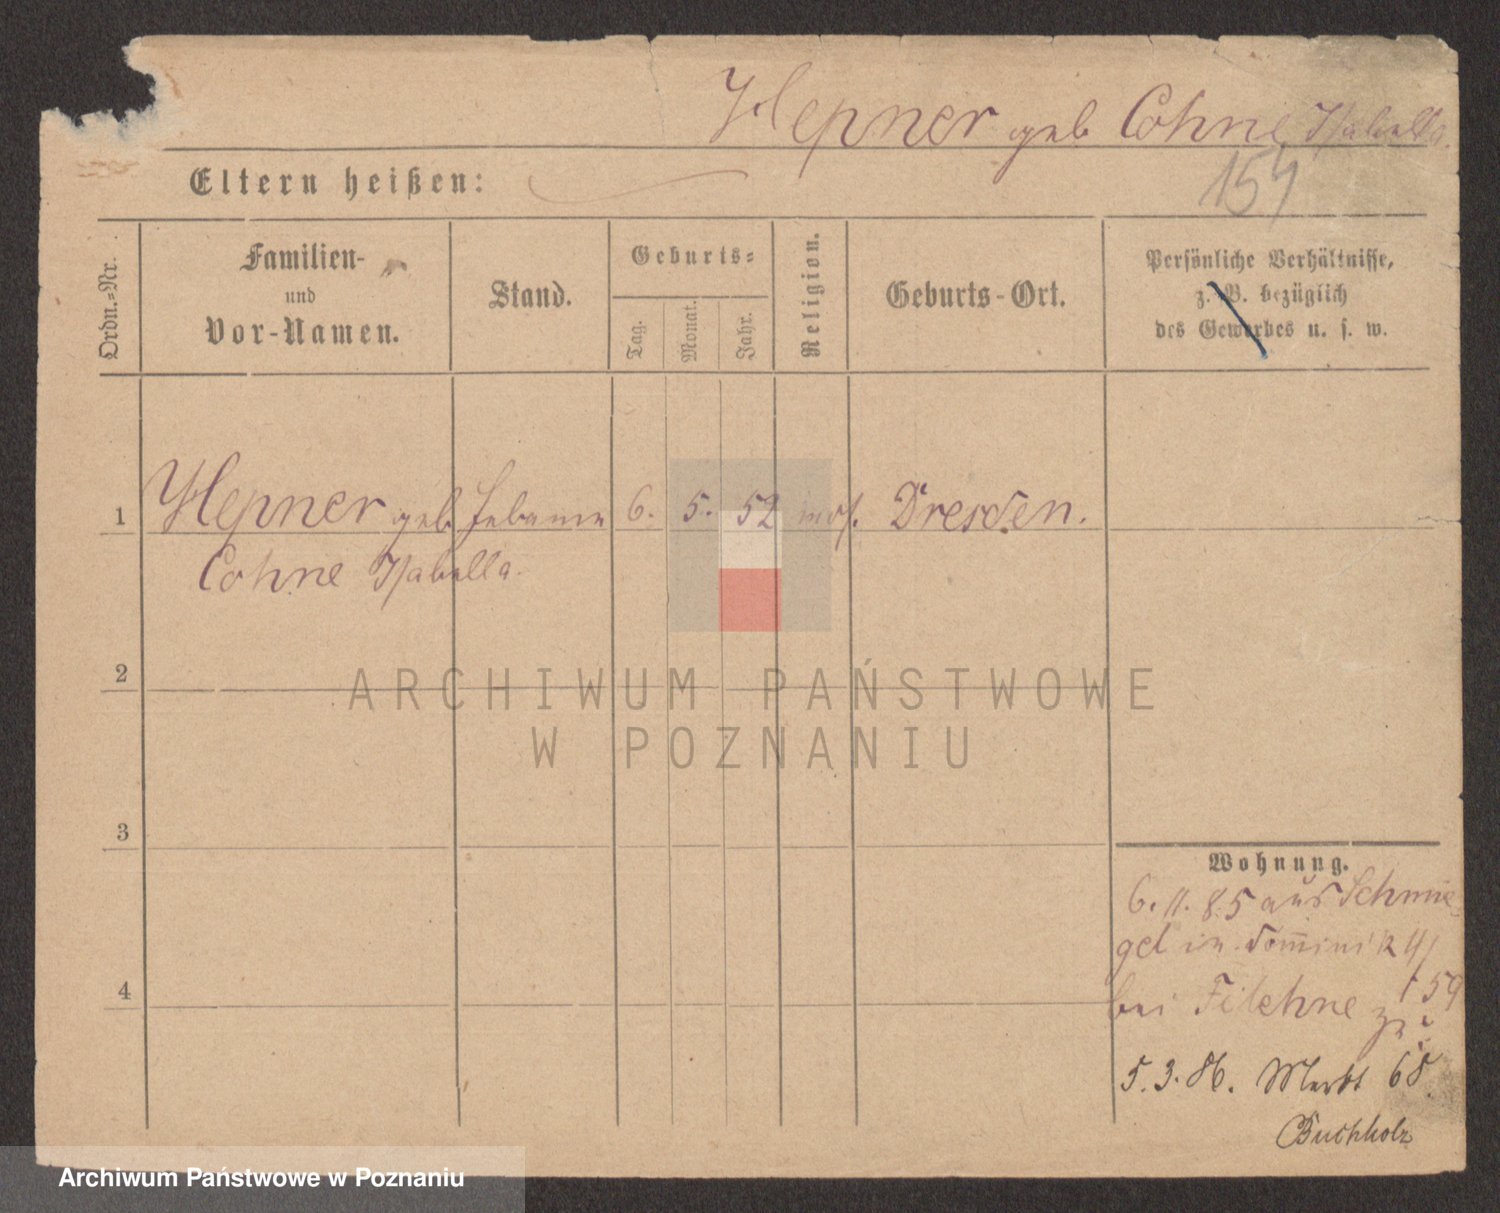 Hepner geb Cohne Isabella.
Eltern heißen:
154
Ordn.=Nr.
Familien-
und
Vor-Namen.
Stand.
Geburts=
Tag.
Monat.
Jahr.
Religion.
Geburts-Ort.
Persönliche Verhältnisse,
z. B. bezüglich
des Gewerbes u. s. w.
1 Hepner geb 6. 5. 52 mos. Dresden.
Cohne Isabella.
2
3
4
Wohnung.
6. 11. 85 aus Schmie-
gel in Domini
bei Filehne zu
5. 3. 86. Markt 68
Buchholz
ARCHIWUM PAŃSTWOWE
W POZNANIU
Archiwum Państwowe w Poznaniu